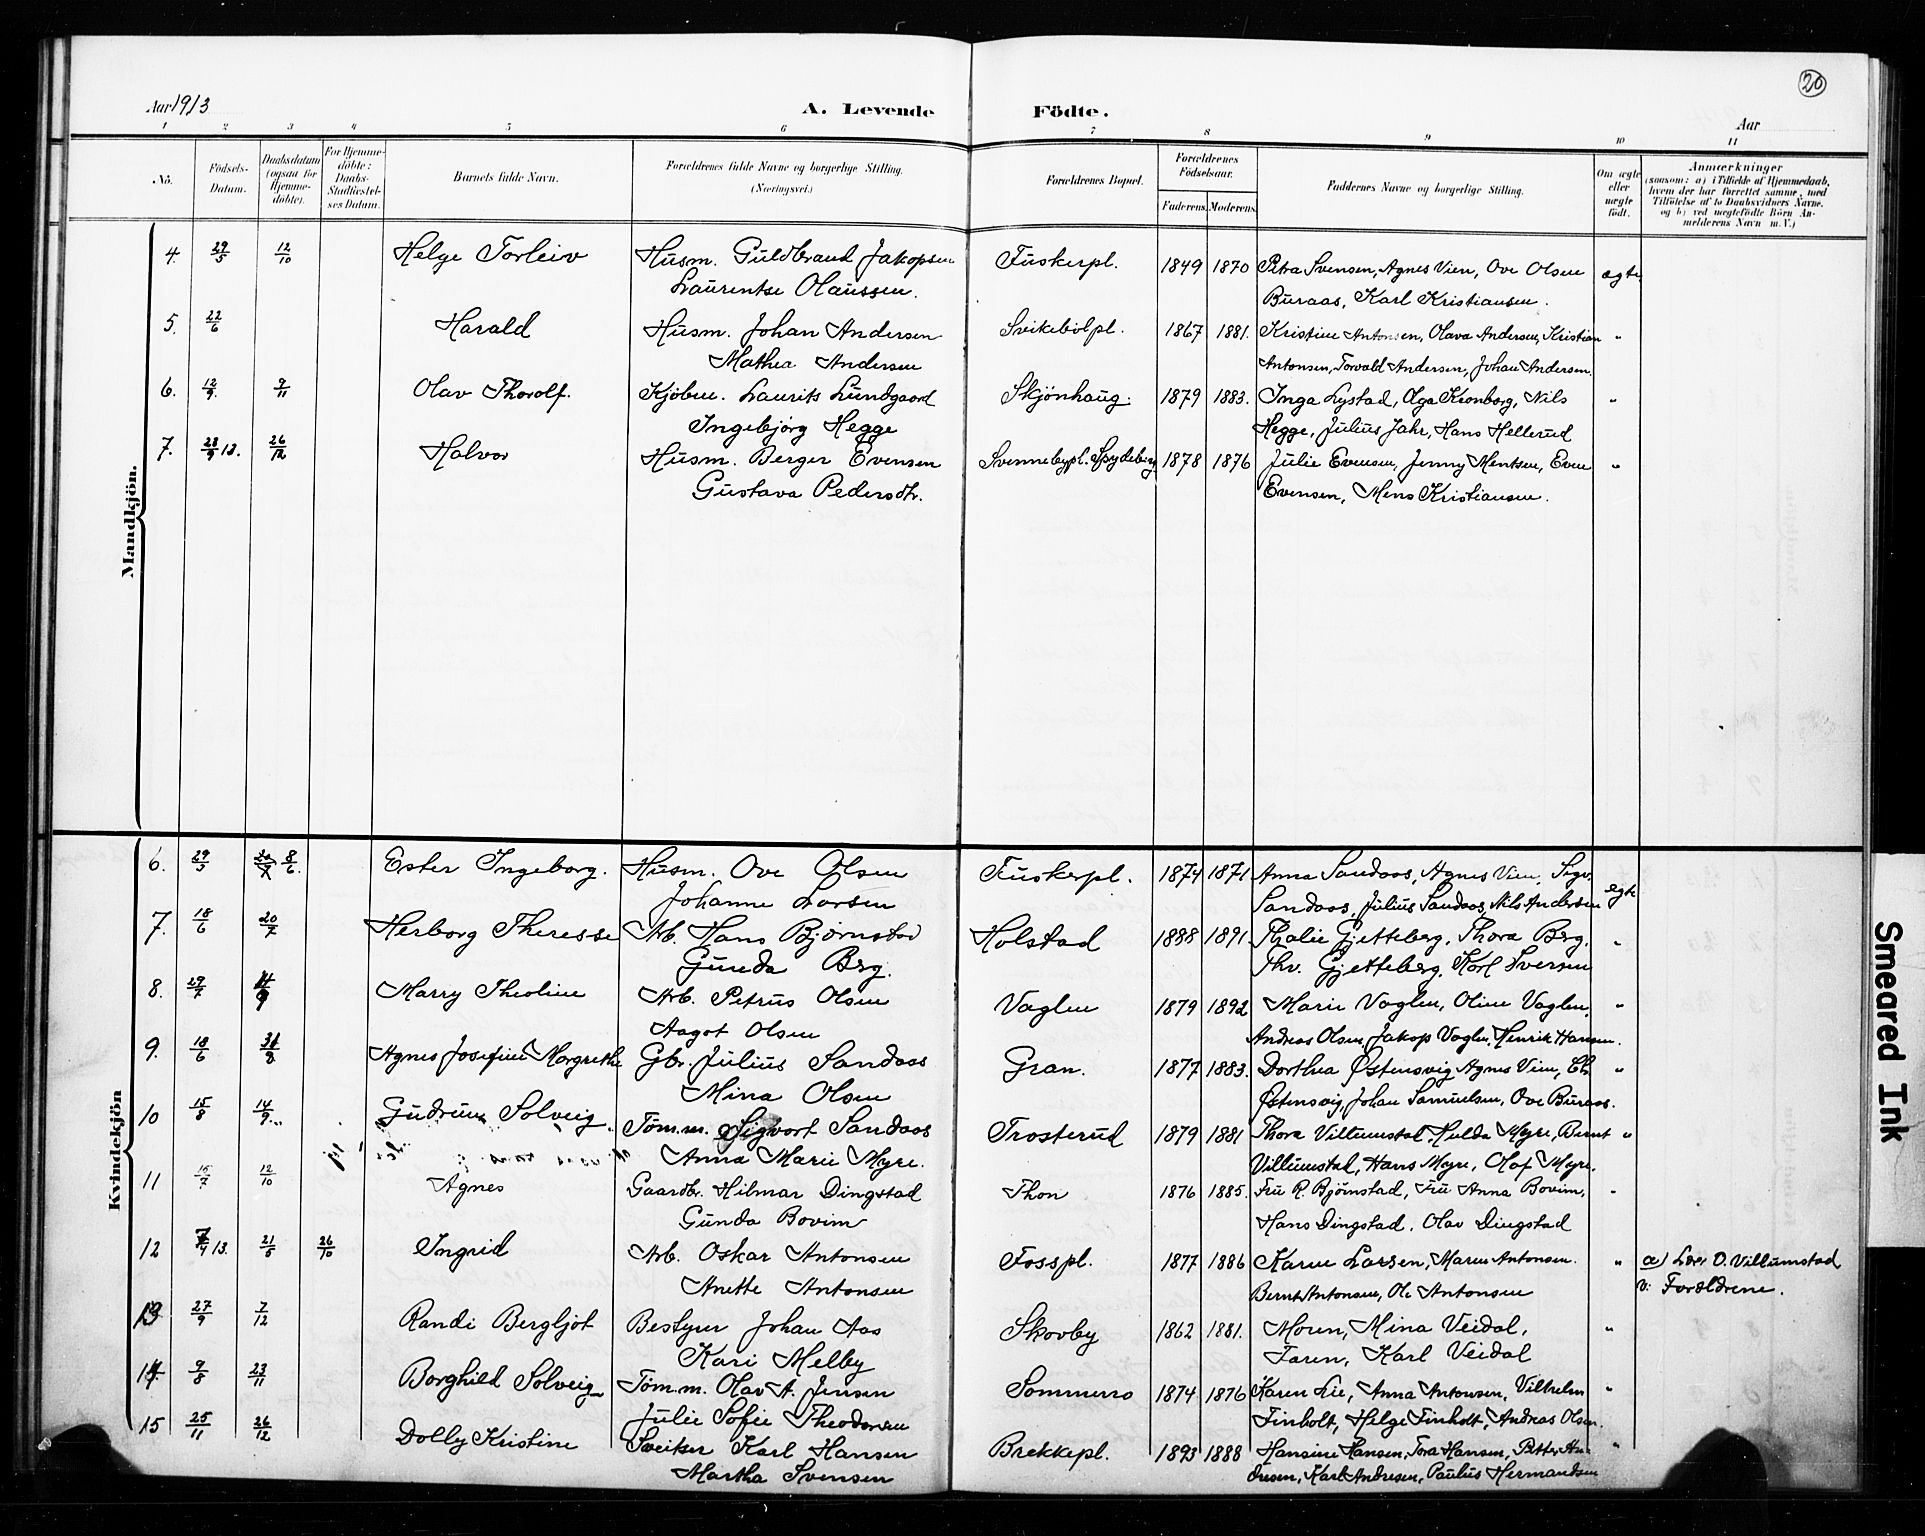 20
Aar 1913
A. Levende
Födte.
Aar
1 2 3 4 5 6 7 8 9 10 11
Nò.
Födsels-
Datum.
Daabsdatum
(ogsaa for
Hjemme-
döbte).
For Hjemme-
döbte:
Daabs-
Stadfæstel-
ses Datum.
Barnets fulde Navn.
Forældrenes fulde Navne og borgerlige Stilling.
(Næringsvei.)
Forældrenes Bopæl.
Forældrenes
Födselsaar.
Faderens. Moderens.
Faddernes Navne og borgerlige Stilling.
Om ægte
eller
uægte
födt.
Anmærkninger
(saasom: a) i Tilfælde af Hjemmedaab,
hvem der har forrettet samme, med
Tilföielse af to Daabsvidners Navne.
og b) ved uægtefödte Börn An-
melderens Navn m. V.)
Mandkjön.
4. 29/5 12/10 Helge Torleiv Husm. Guldbrand Jakopsen Fuskerpl. 1849 1870 Petra Svensen, Agnes Vien, Ove Olsen ægte
Laurentse Olaussen. Buraas, Karl Kristiansen.
5. 22/6 Harald Husm. Johan Andersen Svikebölpl. 1867 1881. Kristine Antonsen, Olava Andersen, Kristian "
Mathea Andersen Antonsen, Torvald Andersen, Johan Andersen.
6. 12/9. 9/11 Olav Thorolf. Kjöbm. Laurits Lundgaard Skjönhaug. 1879 1883. Inga Lystad, Olga Kronborg, Nils "
Ingebjörg Hegge Hegge, Julius Jahr, Hans Hellerud
7. 28/9 13. 26/12 Halvor Husm. Berger Evensen Svennebypl. Spydeberg 1878 1876 Julie Evensen, Jenny Mentsen, Even "
Gustava Pedersdtr. Evensen, Mens Kristiansen.
Kvindekjön
6. 29/3 8/6. Ester Ingeborg. Husm. Ove Olsen Fuskerpl. 1874 1871 Anna Sandaas, Agnes Vien, Sigv. egte
Johanne Larsen Sandaas, Julius Sandaas, Nils Andersen
7. 18/6 20/7 Herborg Theresse Arb. Hans Björnstad Holstad 1888 1891. Thalie Gjetteberg, Thora Berg. "
Gunda Berg. Thv. Gjetteberg, Karl Iversen
8. 27/7 Marry Theoline Arb. Petrus Olsen Vaglen 1879 1892 Marie Vaglen, Oline Vaglen, "
Aagot Olsen Andreas Olsen, Jakop Vaglen, Henrik Hansen.
9. 18/6 31/8 Agnes Josefine Margrethe Gbr. Julius Sandaas Gran. 1877 1883. Dorthea Østensvig Agnes Vien, Chr. "
Mina Olsen Østensvig, Johan Samuelsen, Ove Buraas.
10 15/8 14/9. Gudrun Solveig. Töm.m. Sigvart Sandaas Trosterud 1879 1881 Thora Villumstad, Hulda Myre, Bernt "
Anna Marie Myre. Villumstad, Hans Myre, Olaf Myre.
11 15/7 12/10 Agnes Gaardbr. Hilmar Dingstad Thon 1876 1885. Fru R. Björnstad, Fru Anna Bovim, "
Gunda Bovim Hans Dingstad, Olav Dingstad
12 7/4 13. 21/5 26/10 Ingrid Arb. Oskar Antonsen Fosspl. 1877 1886 Karen Larsen, Maren Antonsen. " a) Lær. O. Villumstad
Anette Antonsen Bernt Antonsen, Ole Antonsen v: Forældrene.
13 27/9 7/12 Randi Bergljot Bestyrer Johan Aas Skovby 1862 1881. Moren, Mina Veidal, "
Kari Melby Faren, Karl Veidal
14 9/8 23/11 Borghild Solveig Töm.m. Olav A. Jensen Sommerro 1874 1876 Karen Lie, Anna Antonsen, Vilhelm "
Julie Sofie Theodorsen Finholt, Helge Finholt, Andreas Olsen.
15 25/11 26/12 Dolly Kristine Sveitser Karl Hansen Brekkepl. 1893 1888 Hansine Hansen, Tora Hansen, Petter An- "
Martha Svensen dresen, Karl Andresen, Paulus Hermandsen
Smeared Ink